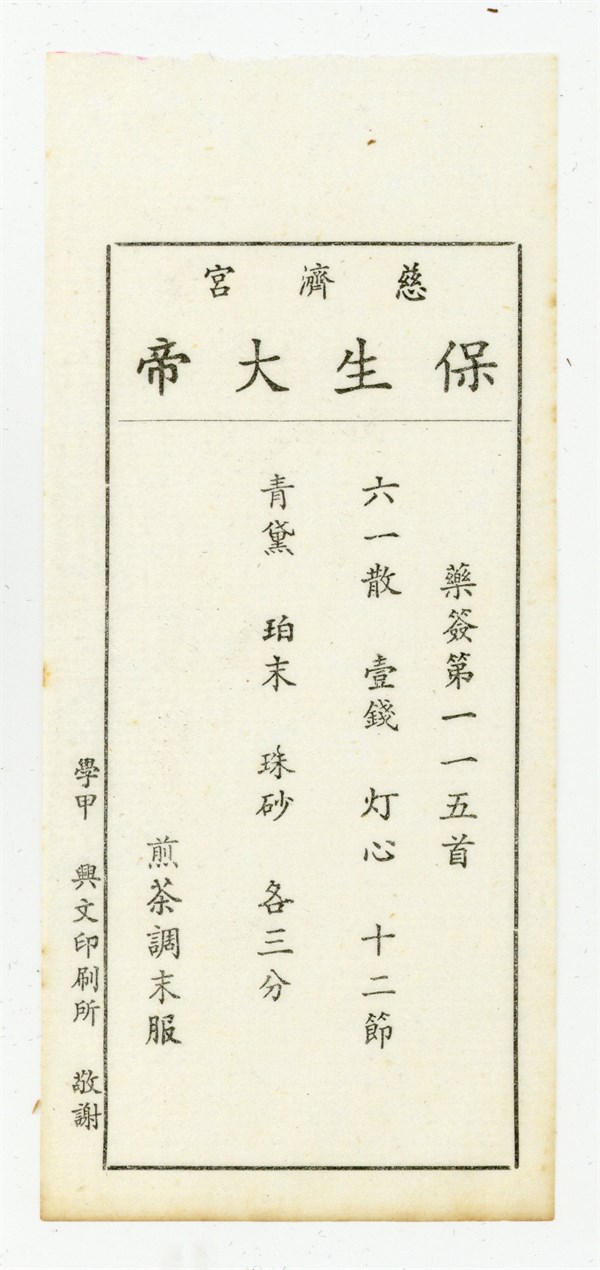 慈濟宮
保生大帝
藥簽第一一五首
六一散 壹錢 灯心 十二節
青黛 珀末 珠砂 各三分
煎茶調末服
學甲 興文印刷所 敬謝